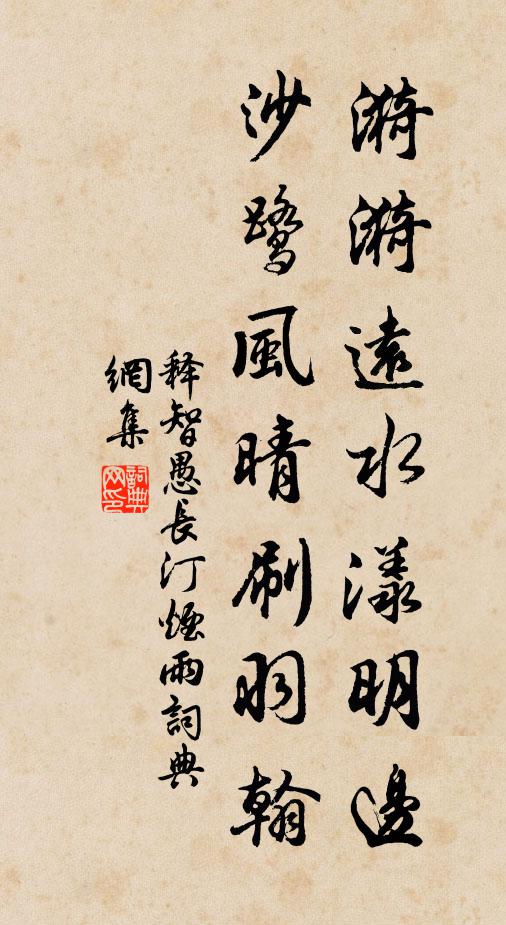 漪漪遠水漾明邊
沙鷺風晴刷羽翰
释智愚長汀煙雨詞典
網集
詞典網印